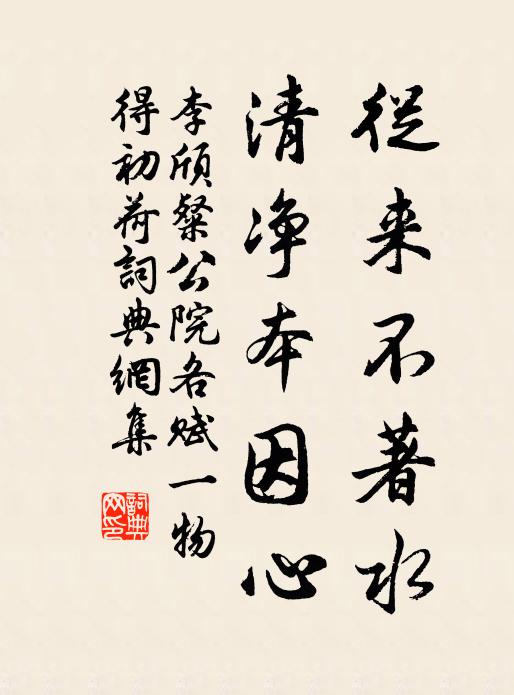 從来不著水
清净本因心
李頎粲公院各赋一物
得初荷詞典網集
詞典
网印